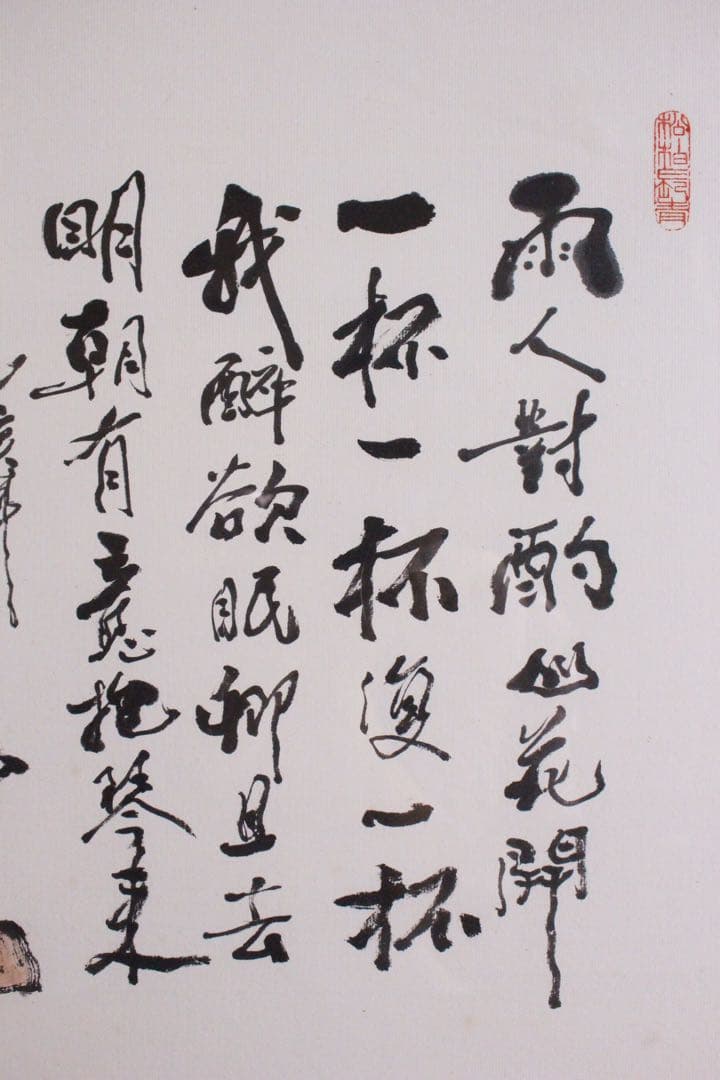 松柏長青
兩人對酌山花開
一杯一杯復一杯
我醉欲眠卿且去
明朝有意抱琴來